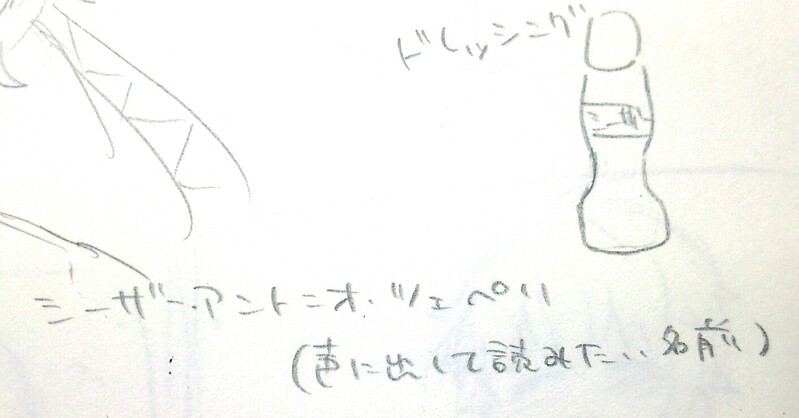 ドレッシング
シーザー
シーザー・アントニオ・ツェペリ
(声に出して読みたい名前)